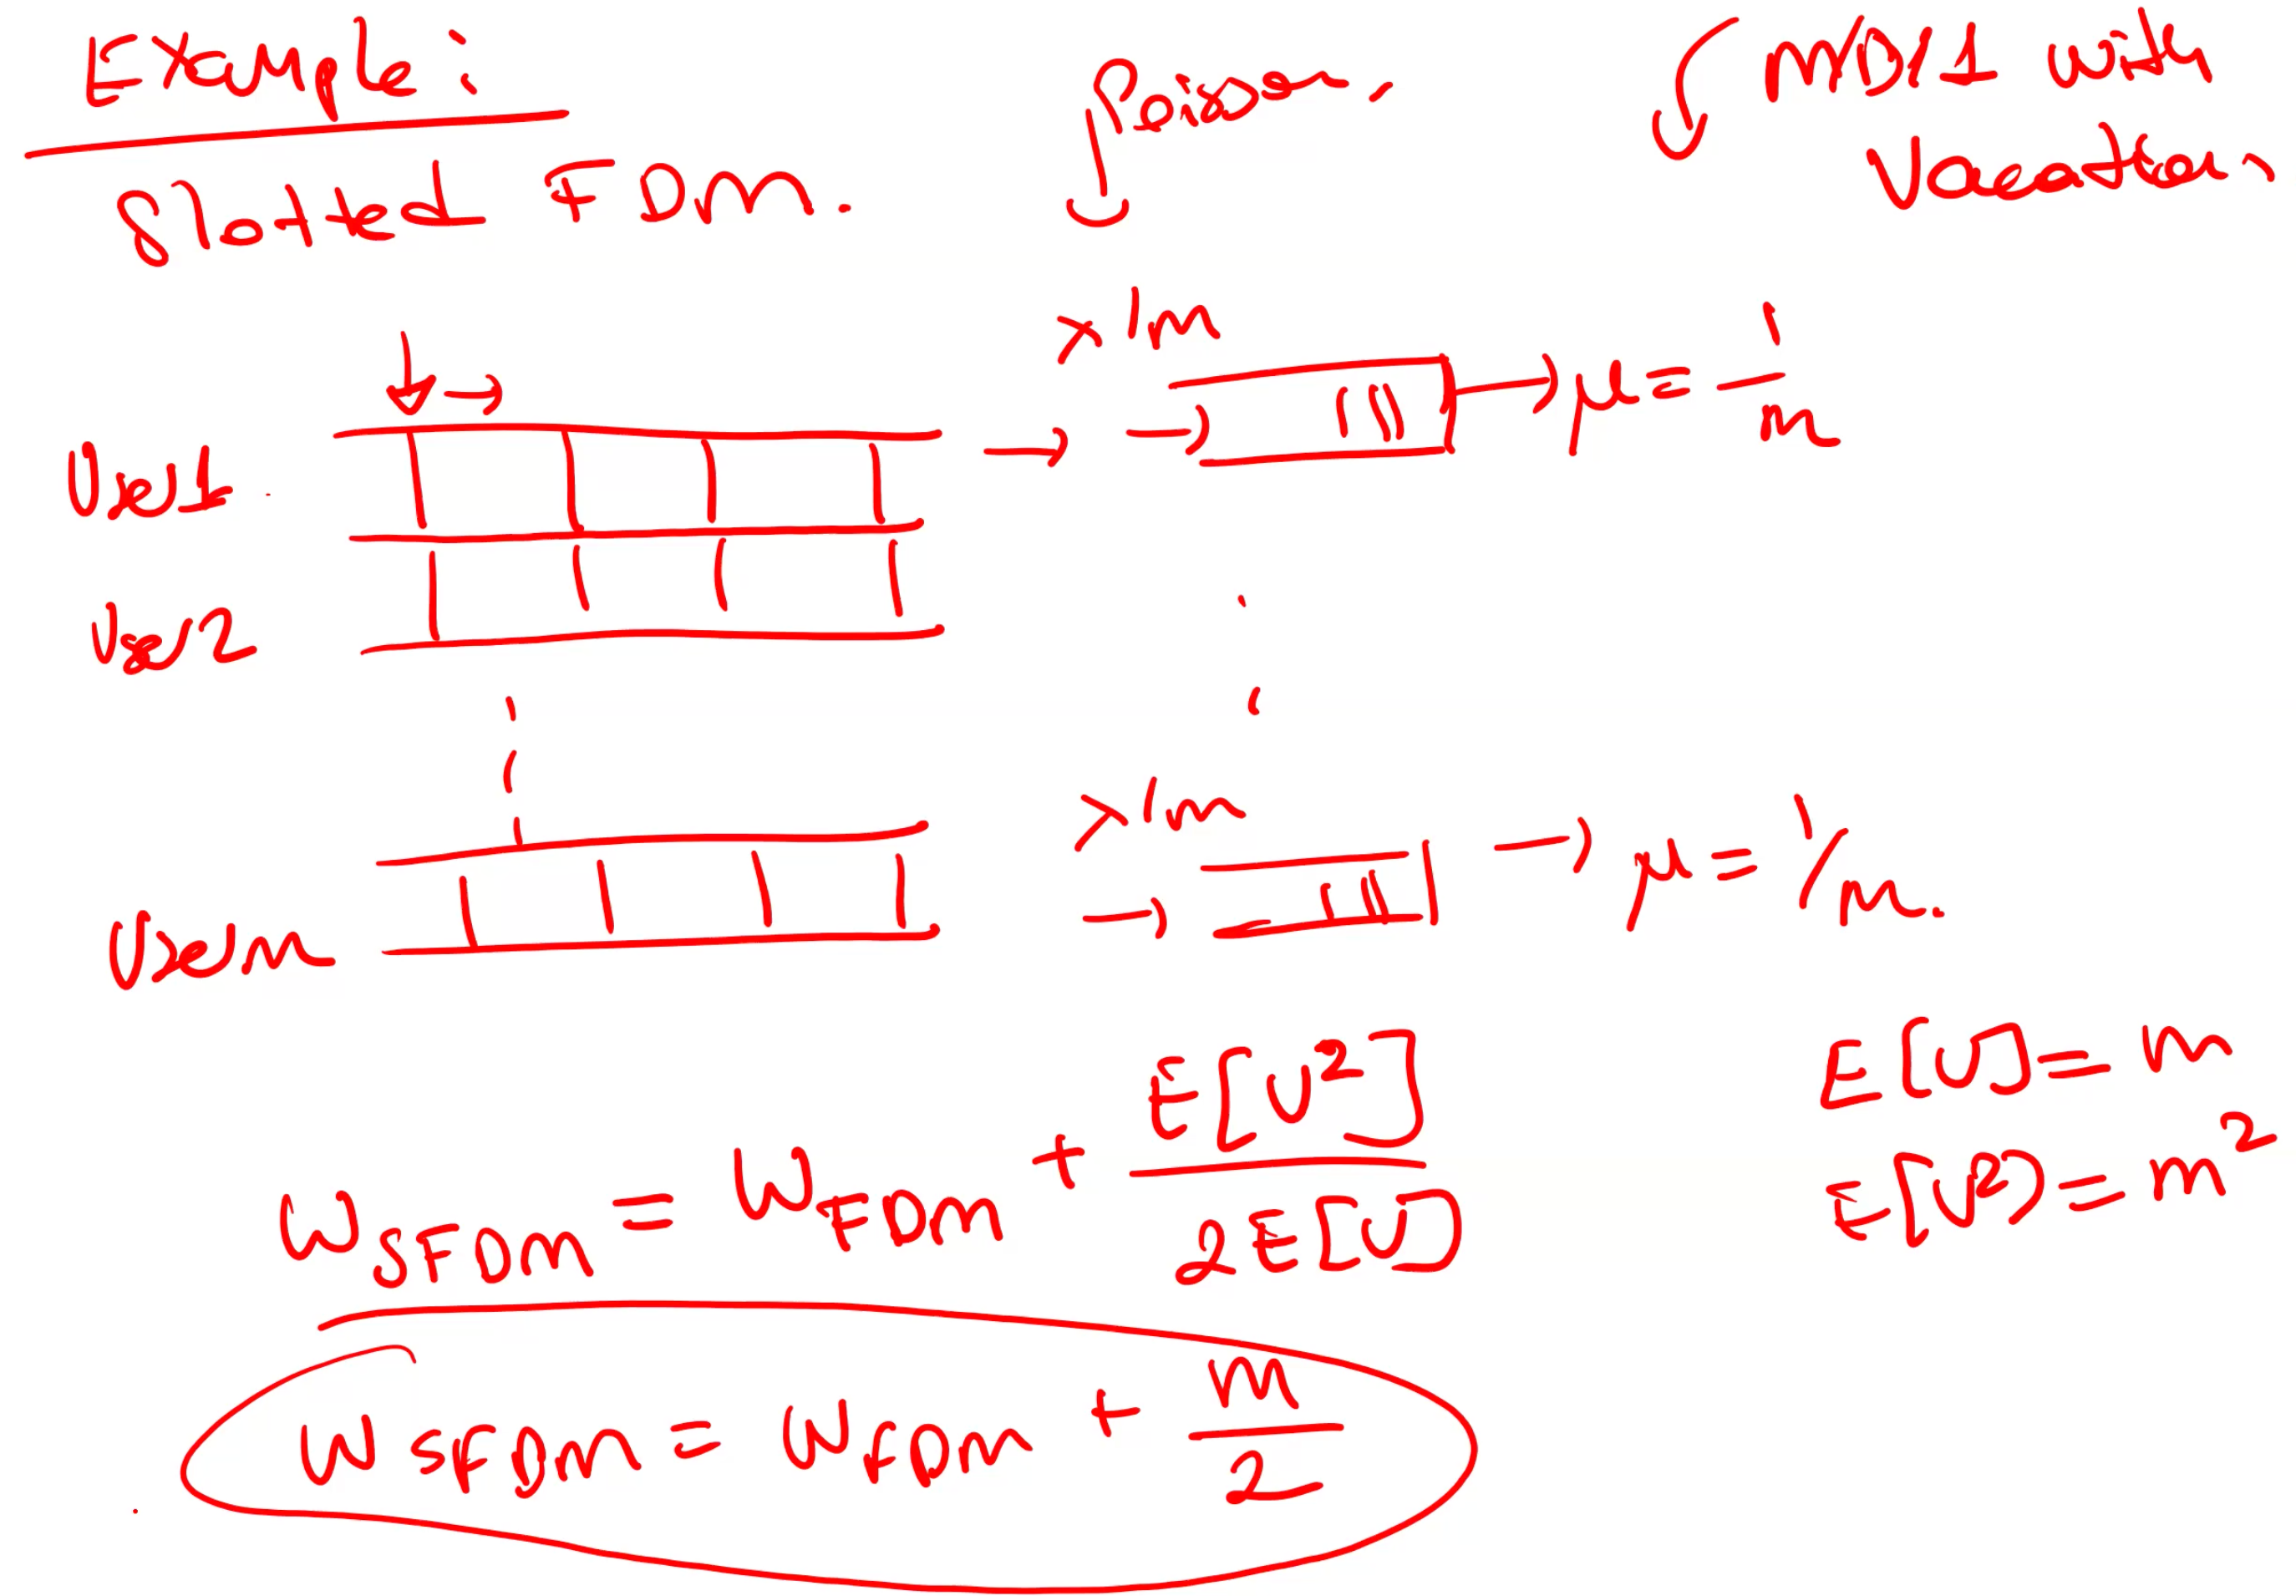 Example:
Slotted FDM.
Poisson.
M/D/1 with
Vacation
λ/m
μ = 1/m
User 1
User 2
λ/m
μ = 1/m.
User m
W_SFDM = W_FDM + E[V²] / 2E[V]
E[V] = m
E[V²] = m²
W_SFDM = W_FDM + m/2